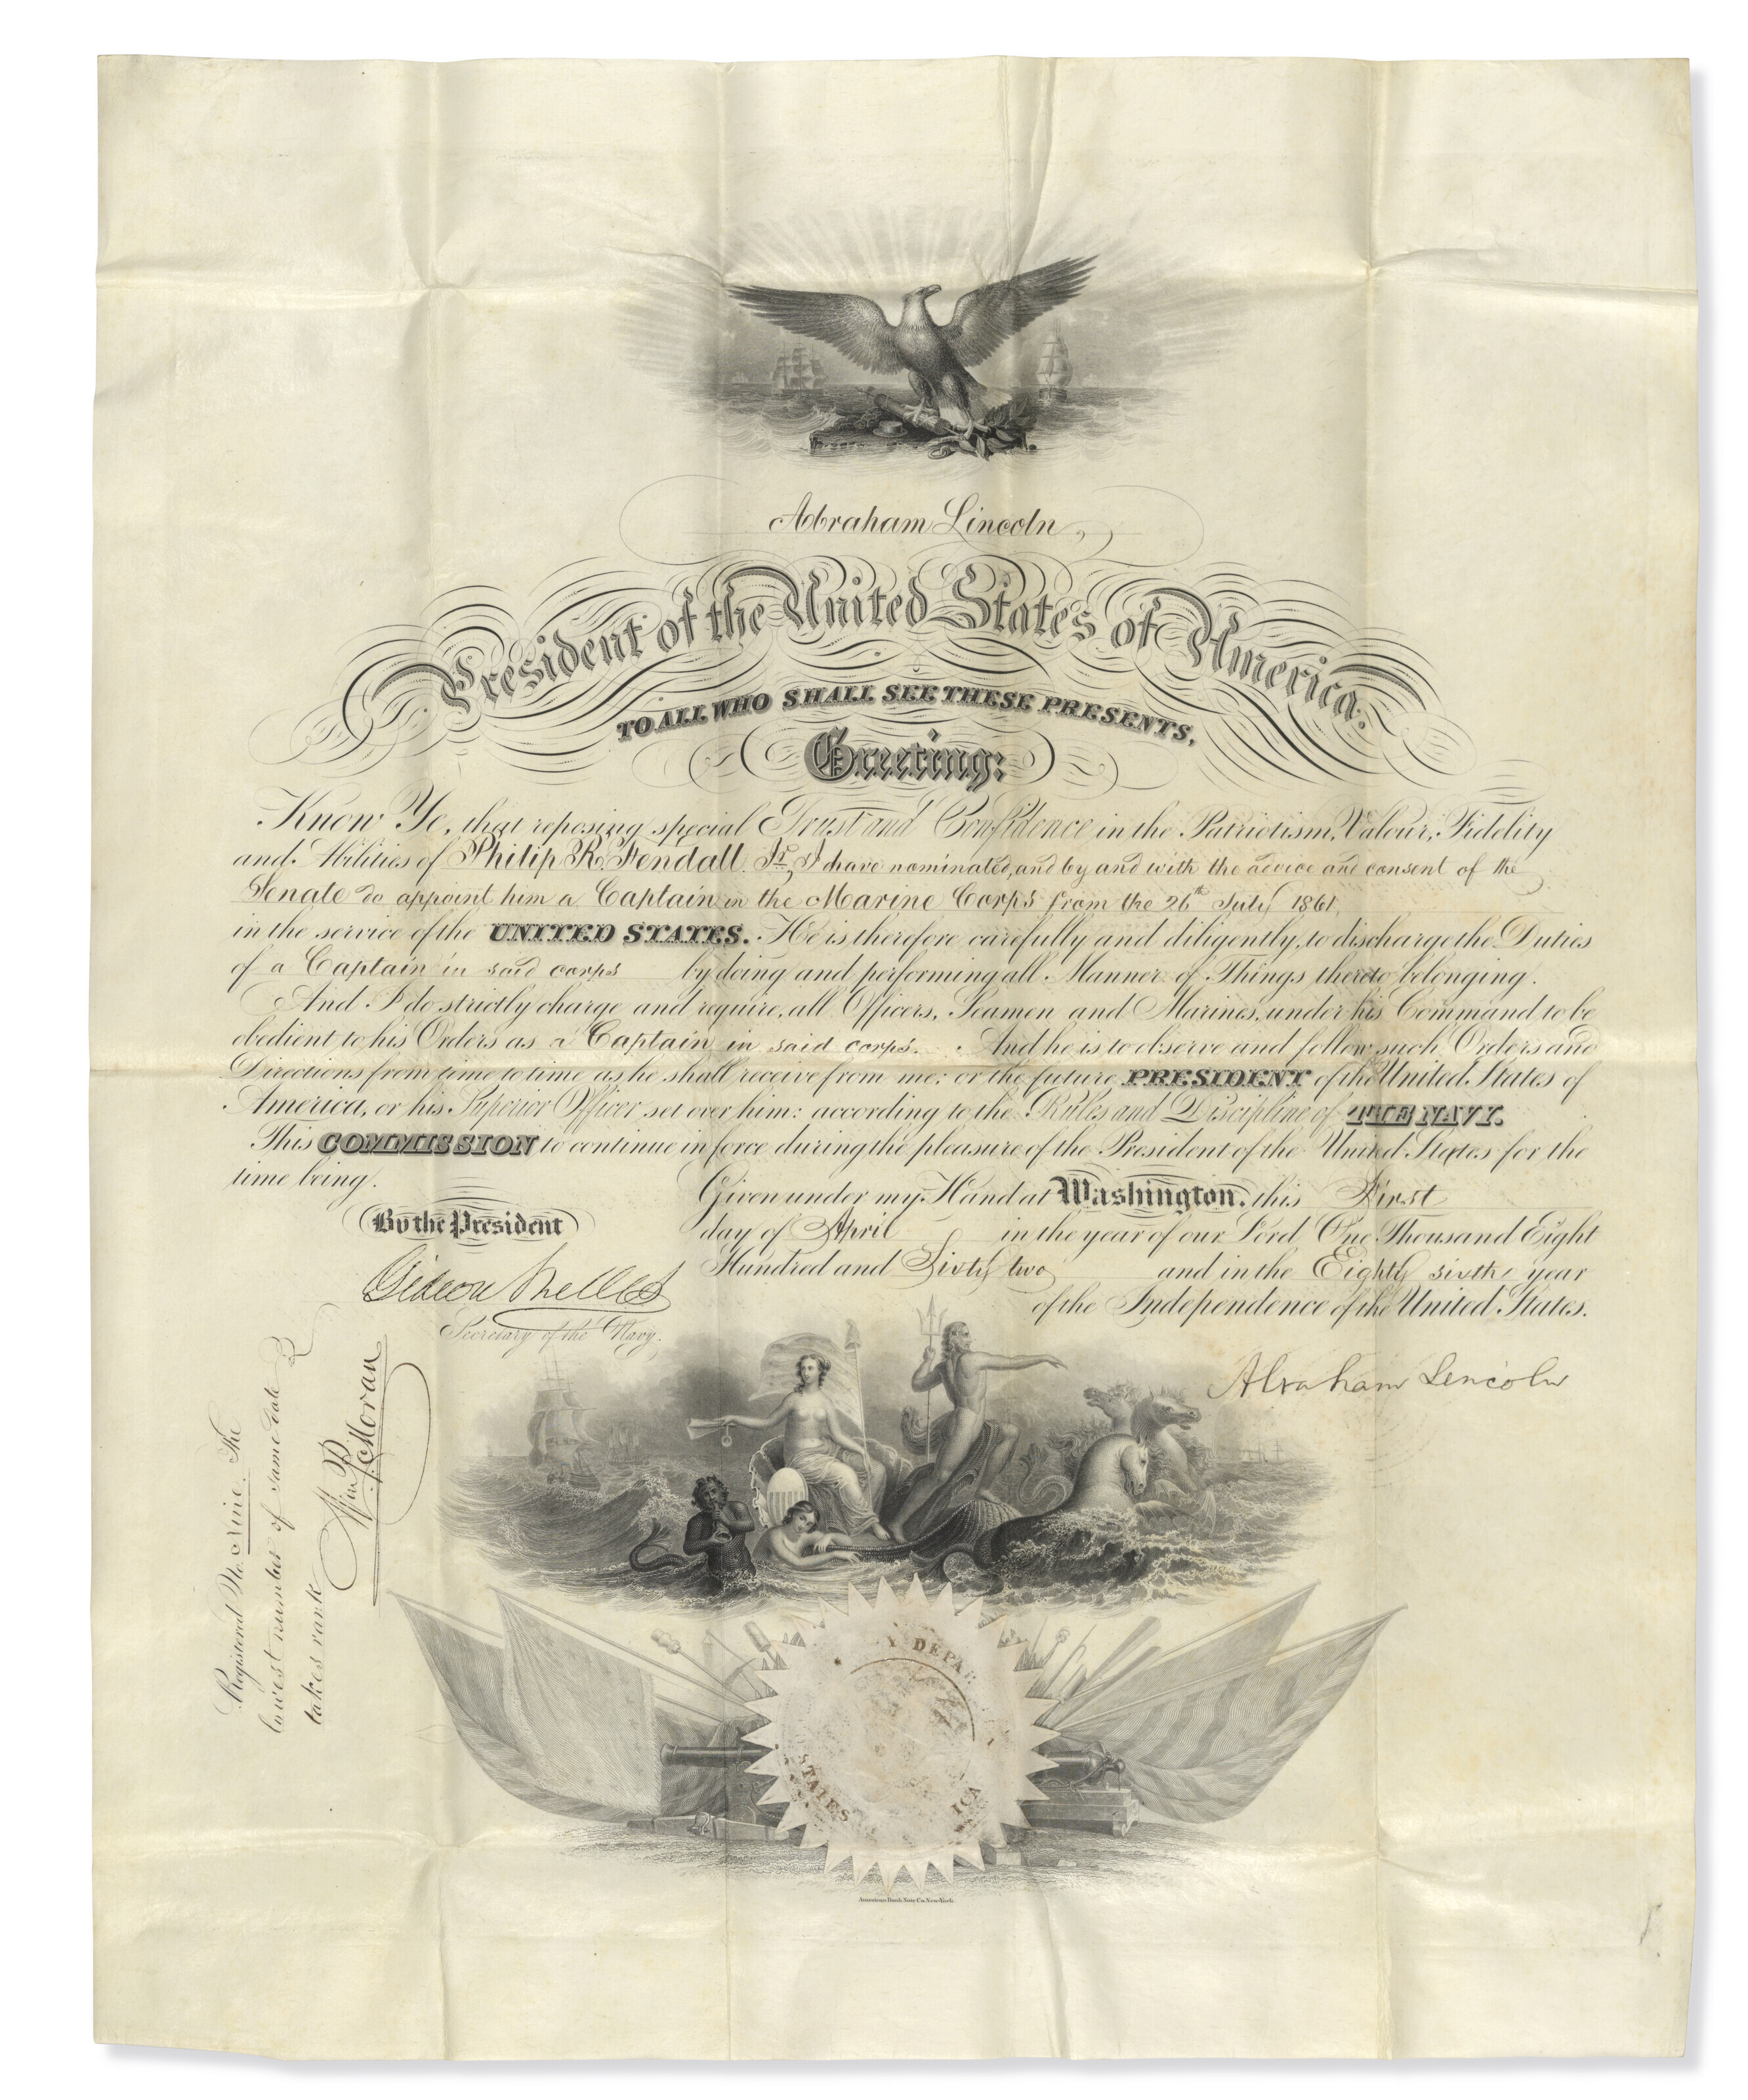 Abraham Lincoln,
President of the United States of America.
TO ALL WHO SHALL SEE THESE PRESENTS,
Greeting:
Know Ye, that reposing special Trust and Confidence in the Patriotism, Valour, Fidelity
and Abilities of Philip R. Fendall Jr. I have nominated, and by and with the advice and consent of the
Senate do appoint him a Captain in the Marine Corps from the 26th July 1861,
in the service of the UNITED STATES. He is therefore carefully and diligently, to discharge the Duties
of a Captain in said corps by doing and performing all Manner of Things thereto belonging.
And I do strictly charge and require, all Officers, Seamen and Marines, under his Command to be
obedient to his Orders as a Captain in said corps. And he is to observe and follow such Orders and
Directions from time to time as he shall receive from me: or the future PRESIDENT of the United States of
America, or his Superior Officer set over him: according to the Rules and Discipline of THE NAVY.
This COMMISSION to continue in force during the pleasure of the President of the United States for the
time being.
Given under my Hand at Washington, this First
day of April in the year of our Lord One Thousand Eight
Hundred and Sixty two and in the Eighty sixth year
of the Independence of the United States.
By the President
Gideon Welles
Secretary of the Navy.
Abraham Lincoln
Registered No. Nine. The
lowest number of same date
takes rank
Wm B Moran
Y DEPAR
STATES
ICA
American Bank Note Co. New-York